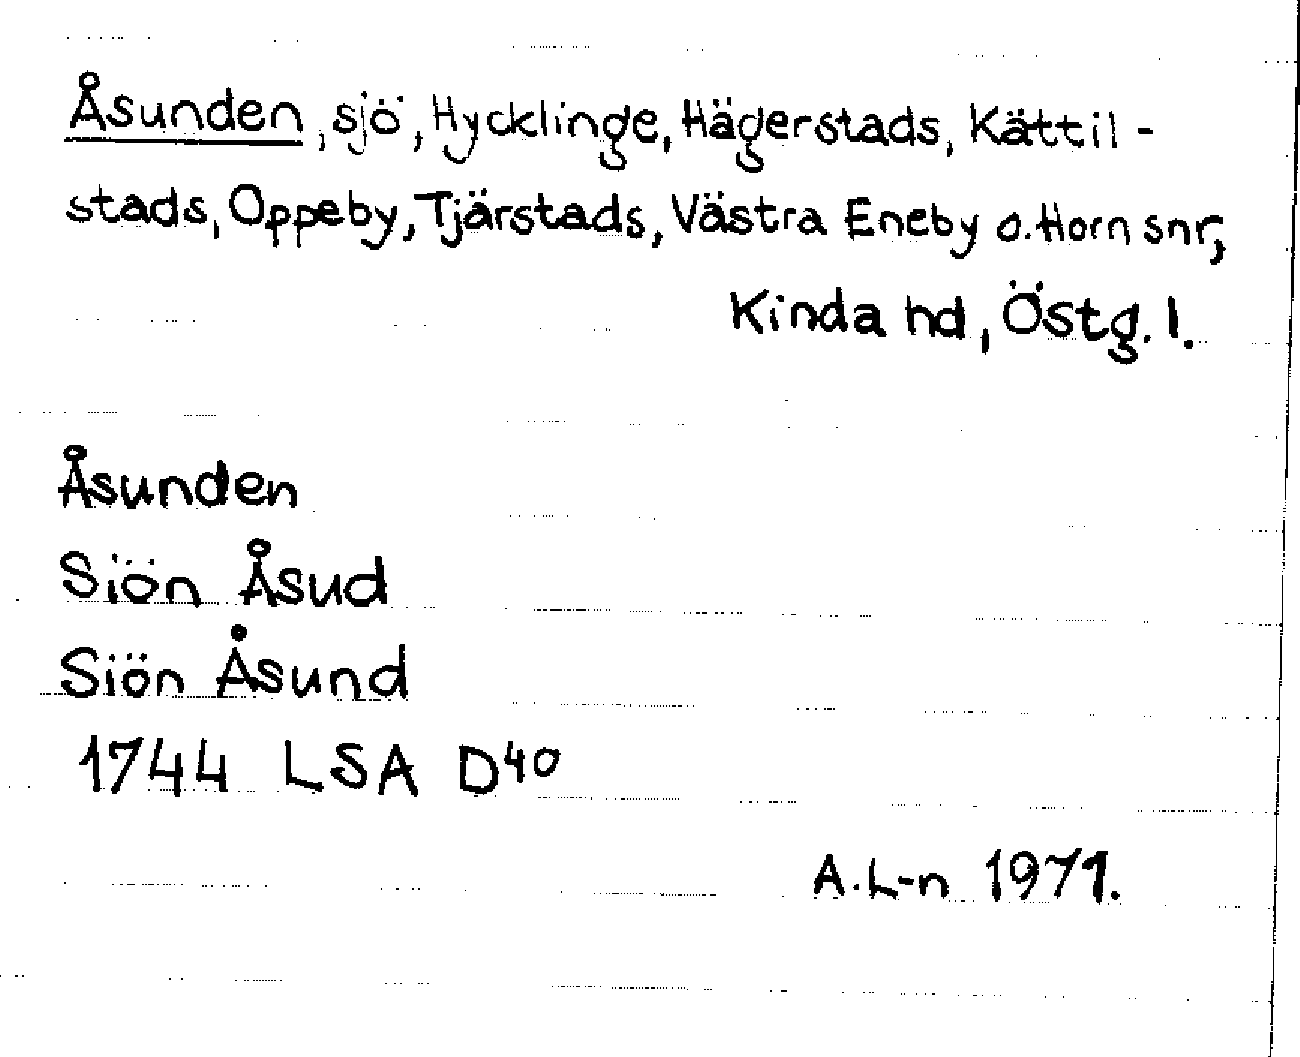 Åsunden, sjö, Hycklinge, Hägerstads, Kättil-
stads, Oppeby, Tjärstads, Västra Eneby o. Horn snr,
Kinda hd, Östg. l.
Åsunden
Siön Åsud
Siön Åsund
1744 LSA D40
A.L-n 1971.